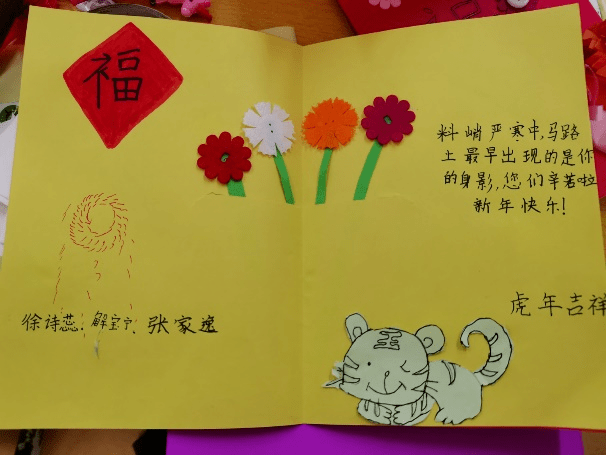 福
料峭严寒中,马路
上最早出现的是你
的身影,您们辛苦啦
新年快乐!
虎年吉祥
徐诗蕊、解宝宁、张家逸